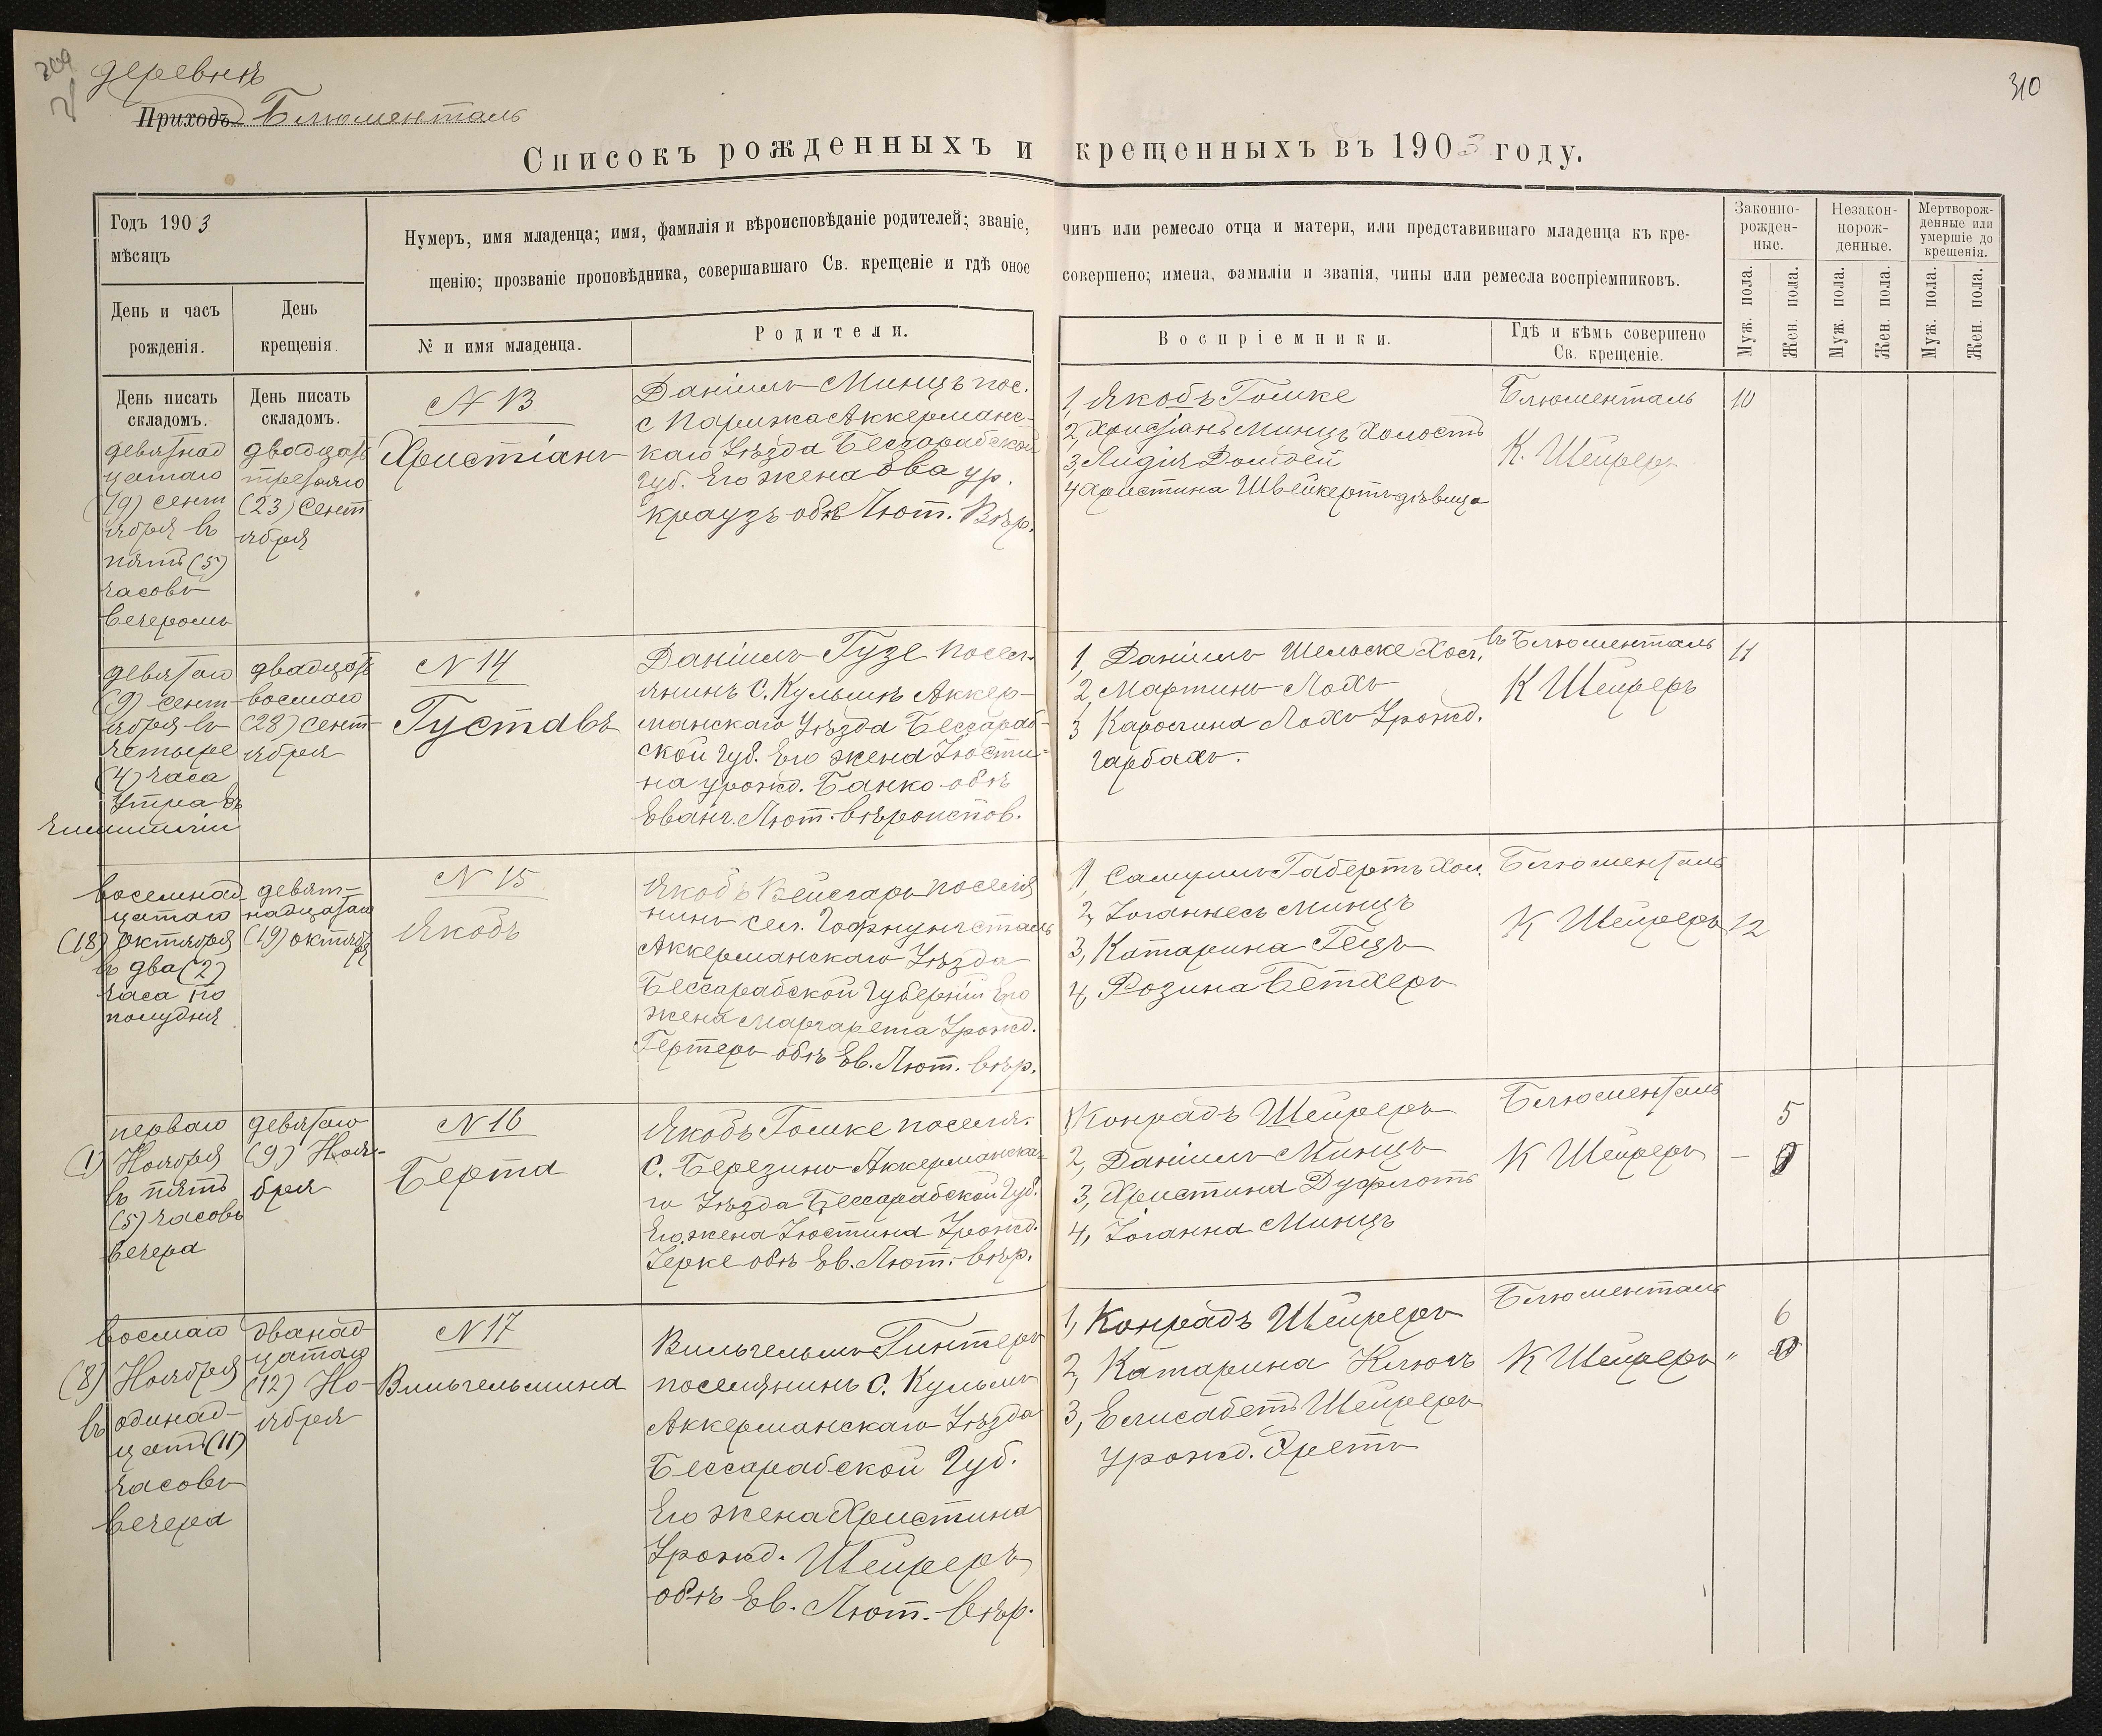 309
деревня
310
Приходъ Блюменталь
Списокъ рожденныхъ и крещенныхъ въ 1903 году.
Годъ 1903
мѣсяцъ
Нумеръ, имя младенца; имя, фамилія и вѣроисповѣданіе родителей; званіе, чинъ или ремесло отца и матери, или представившаго младенца къ кре-
щенію; прозваніе проповѣдника, совершавшаго Св. крещеніе и гдѣ оное совершено; имена, фамиліи и званія, чины или ремесла воспріемниковъ.
Законно-
рожден-
ные.
Незакон-
норож-
денные.
Мертворож-
денные или
умершіе до
крещенія.
День и часъ
рожденія.
День
крещенія.
№ и имя младенца.
Родители.
Воспріемники.
Гдѣ и кѣмъ совершено
Св. крещеніе.
Муж. пола.
Жен. пола.
Муж. пола.
Жен. пола.
Муж. пола.
Жен. пола.
День писать
складомъ.
День писать
складомъ.
девятнад
цатаго
(19) сент
ября въ
пять (5)
часовъ
вечеромъ
двадцать
третьяго
(23) сент
ября
N 13
Христіанъ
Даніилъ Минцъ пос.
с Парижа Аккерманс-
каго Уѣзда Бессарабской
Губ. Его жена Ева ур.
Краузъ обѣ Лют. Вѣр.
1, Якобъ Гомке
2, Христіанъ Минцъ Холостъ
3, Лидія
4 Христина Швейкертъ дѣвица
Блюменталь
К. Шейреръ
10
девятаго
(9) сент-
ября въ
четыре
(4) часа
утра въ
двадцать
восмаго
(28) сент-
ября
N 14
Густавъ
Даніилъ Гузе посел-
янинъ С. Кульмъ Аккер-
манскаго Уѣзда Бессараб-
ской Губ. Его жена Юсти-
на урожд. Банко обѣ
Еванг. Лют. вѣроиспов.
1, Даніилъ Шельске Хол.
2, Мартинъ Лохъ
3 Каролина Лохъ Урожд.
Гарбахъ.
въ Блюменталь
К Шейреръ
11
восемнад
цатаго
(18) октября
въ два (2)
часа по
полудня
девят-
надцатаго
(19) октября
N 15
Якобъ
Якобъ Вейспаръ поселя
нинъ сел. Гофнунгсталь
Аккерманскаго Уѣзда
Бессарабской Губерніи Его
жена Маргарета Урожд.
Гертеръ обѣ Ев. Лют. вѣр.
1, Самуилъ Габертъ Хол.
2, Іоганнесъ Минцъ
3, Катарина Гецъ
4, Розина Бетхеръ
Блюменталь
К Шейреръ
12
перваго
(1) Ноября
въ пять
(5) часовъ
вечера
девятаго
(9) Ноя-
бря
N 16
Берта
Якобъ Гомке поселя.
С. Березино Аккерманска-
го Уѣзда Бессарабской Губ.
Его жена Юстина Урожд.
Герке обѣ Ев. Лют. вѣр.
1 Конрадъ Шейреръ
2, Даніилъ Минцъ
3, Христина Дуфлотъ
4, Іоганна Минцъ
Блюменталь
К Шейреръ
–
5
восмаго
(8) Ноября
въ одинад-
цать (11)
часовъ
вечера
дванад-
цатаго
(12) Но-
ября
N 17
Вильгельмина
Вильгельмъ Гинтеръ
поселянинъ С. Кульмъ
Аккерманскаго Уѣзда
Бессарабской Губ.
Его жена Христина
Урожд. Шейреръ
обѣ Ев. Лют. вѣр.
1, Конрадъ Шейреръ
2, Катарина Клюгъ
3, Елисабетъ Шейреръ
Урожд.
Блюменталь
К Шейреръ
"
6